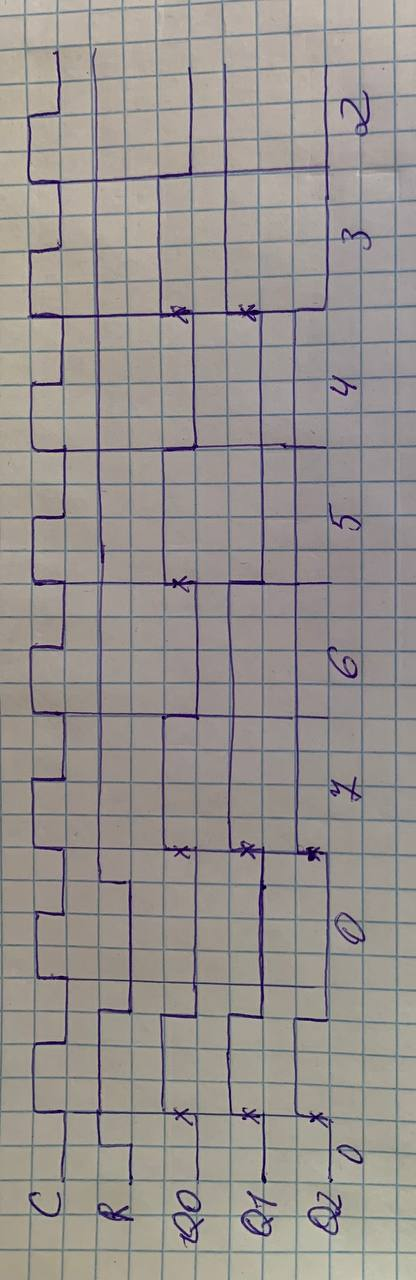 C
R
Q0
Q1
Q2
0 0 7 6 5 4 3 2